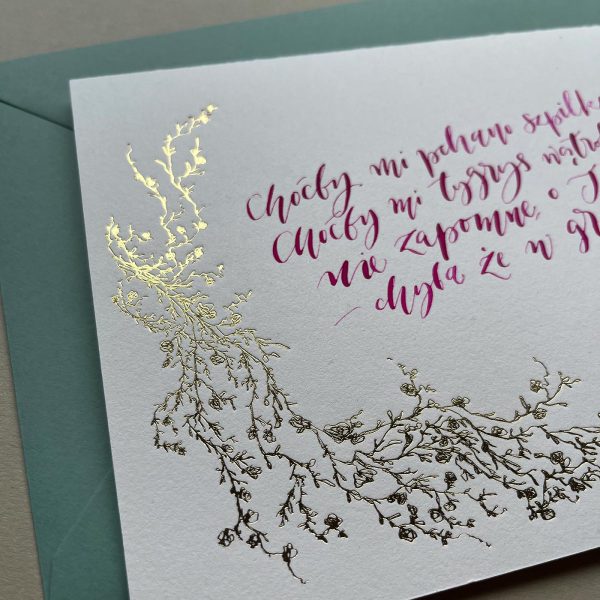 Choćby mi pchano szpilk
Choćby mi tygrys wątro
nie zapomnę o T
- chyba że w gr